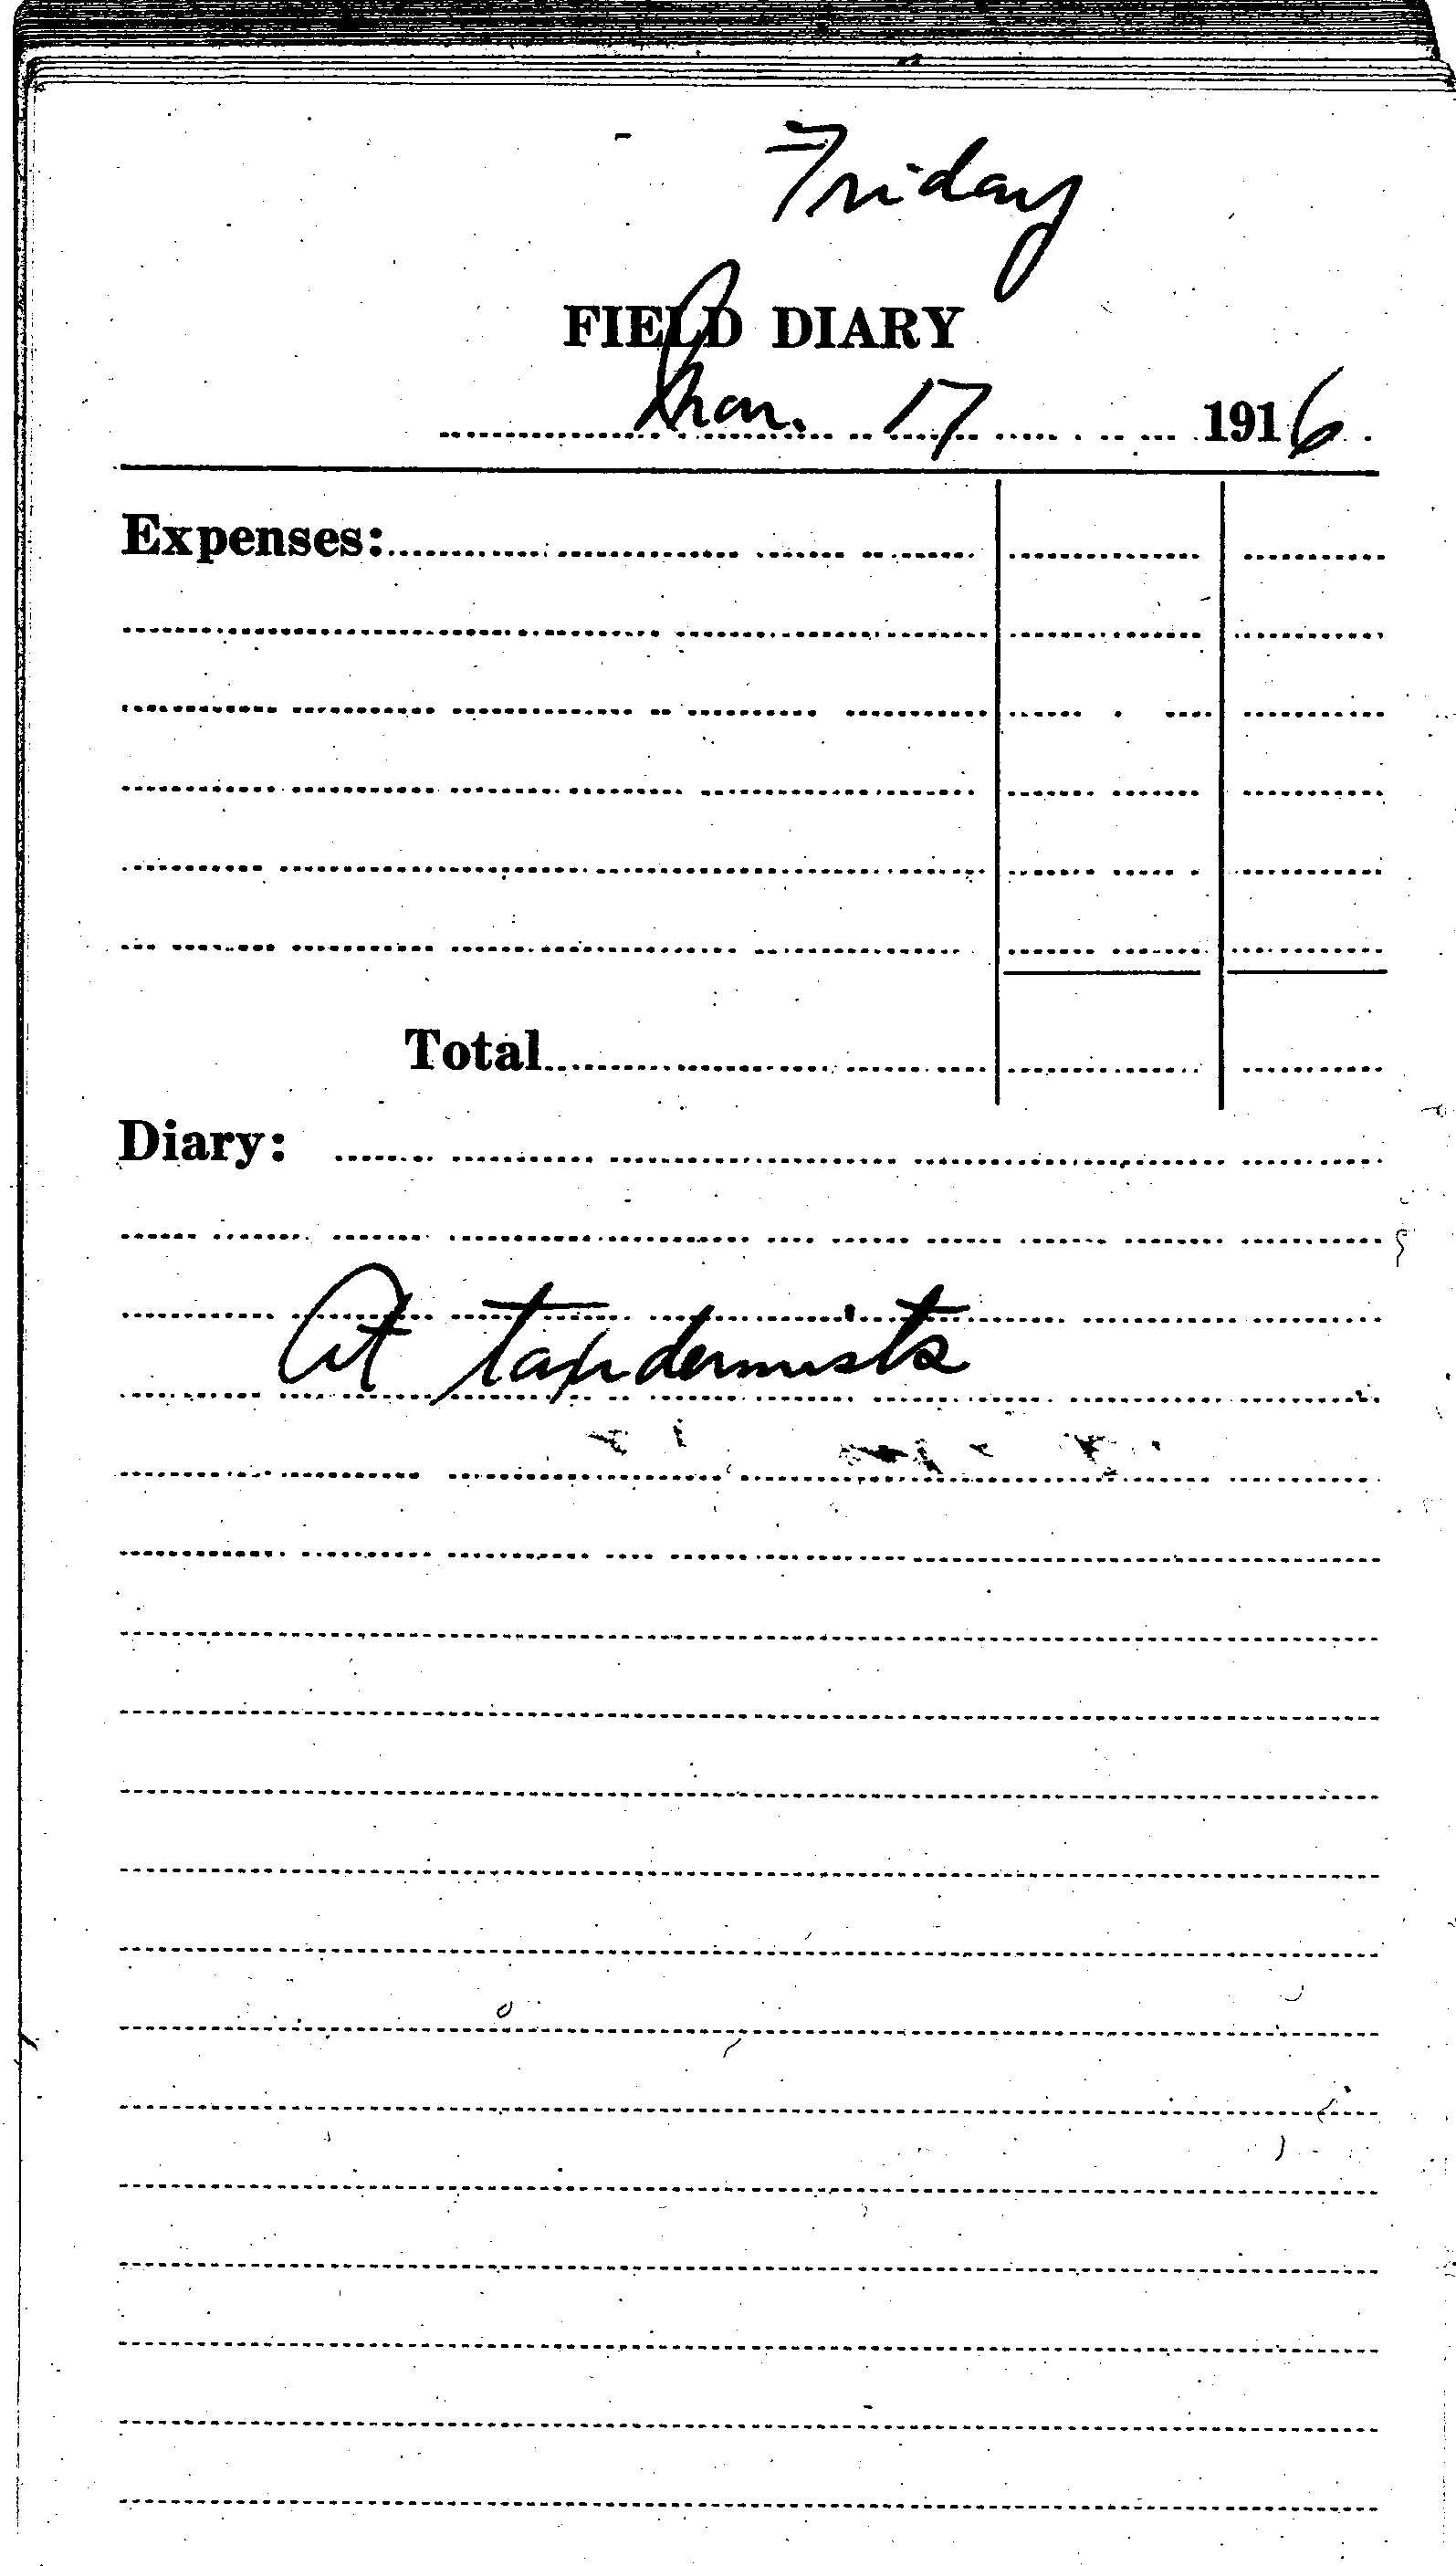 Friday
FIELD DIARY
17 1916
Expenses:
Total
Diary:
At taxidermists